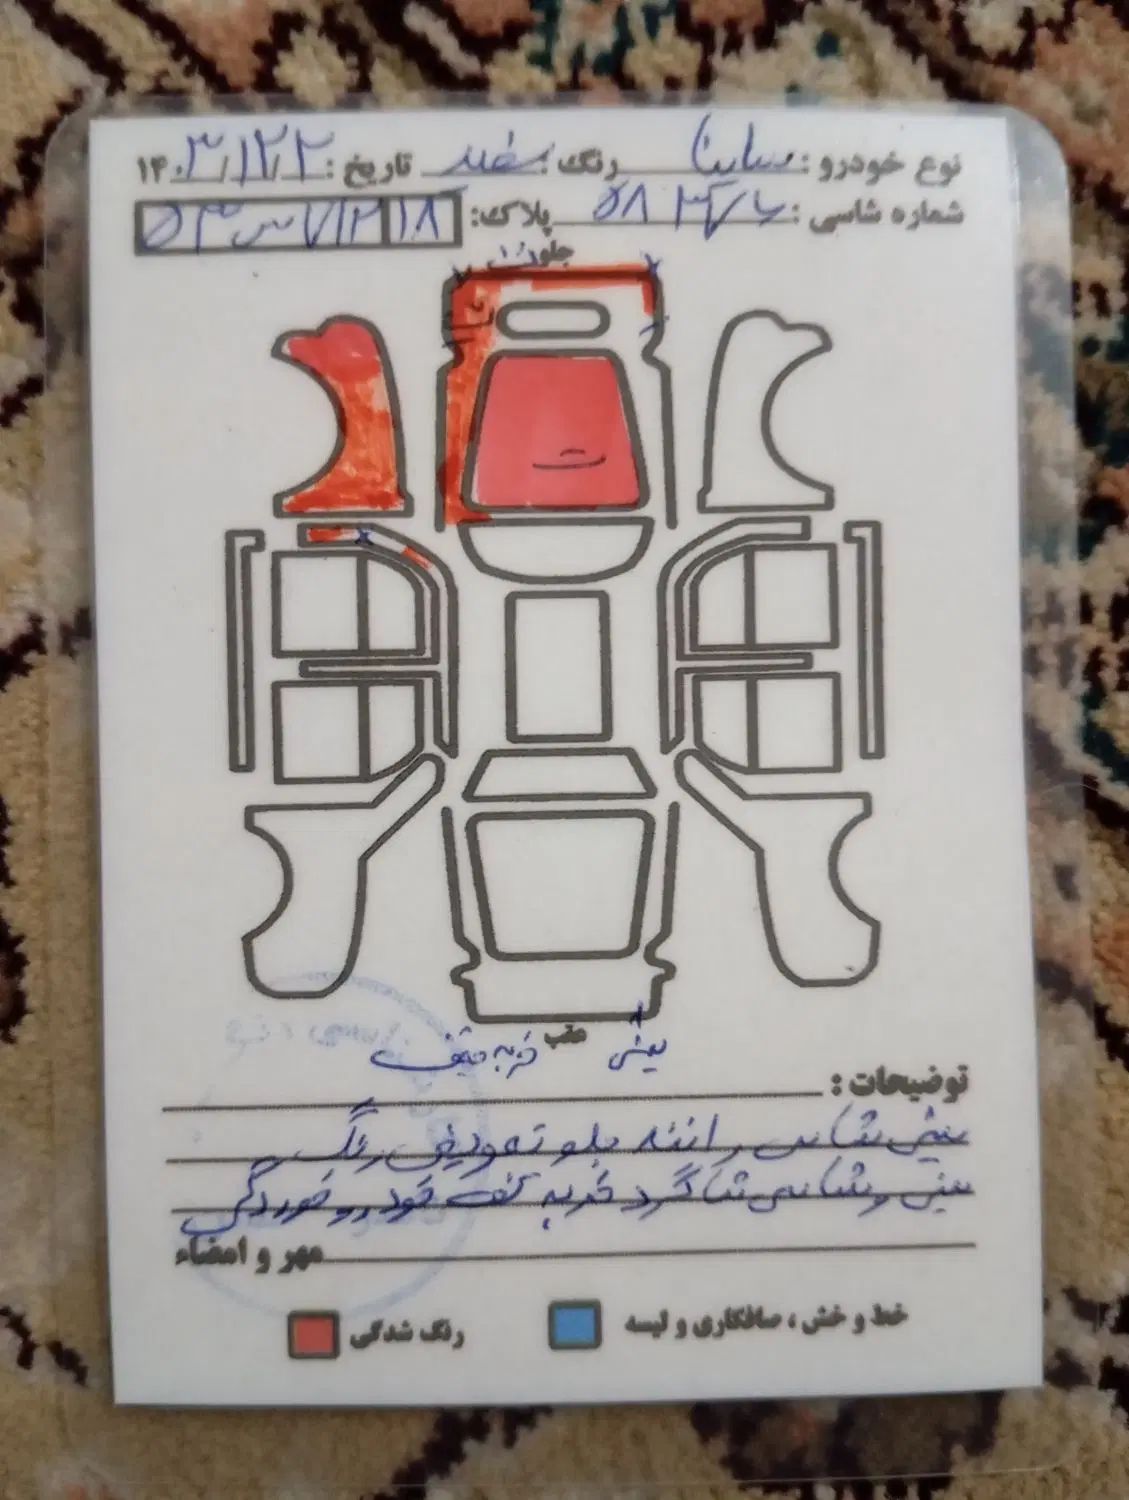 نوع خودرو : ساینا رنگ : سفید تاریخ : ۱۴۰۳/۱۲/۲
شماره شاسی : پلاک: ۱۸
جلو
عقب
سینی ضربه خفیف
توضیحات :
سینی شاسی راننده جلو تعویض رنگ
سینی و شاسی شاگرد ضربه کف خودرو خوردگی
مهر و امضاء
خط و خش ، صافکاری و لیسه
رنگ شدگی